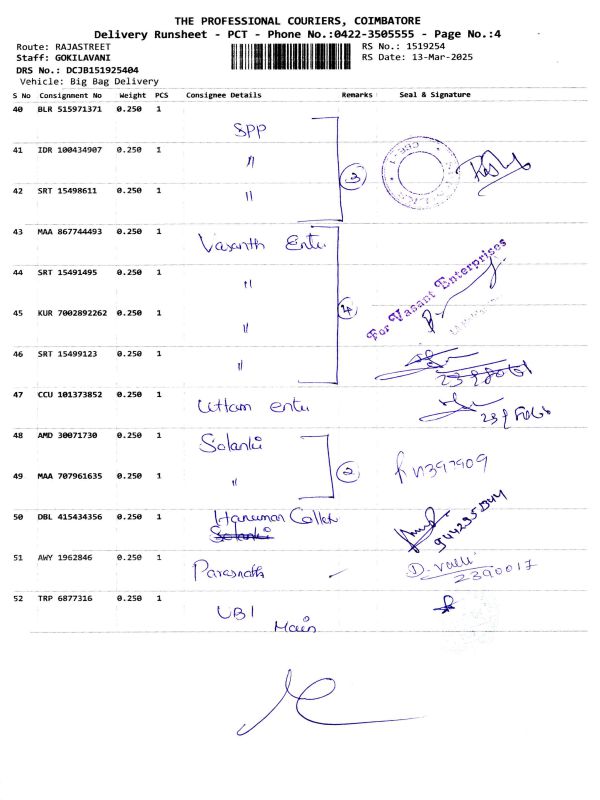 THE PROFESSIONAL COURIERS, COIMBATORE
Delivery Runsheet - PCT - Phone No.:0422-3505555 - Page No.:4
Route: RAJASTREET
RS No.: 1519254
Staff: GOKILAVANI
RS Date: 13-Mar-2025
DRS No.: DCJB151925404
Vehicle: Big Bag Delivery
S No Consignment No Weight PCS Consignee Details Remarks Seal & Signature
40 BLR 515971371 0.250 1 SPP
41 IDR 100434907 0.250 1 "
3
42 SRT 15498611 0.250 1 "
43 MAA 867744493 0.250 1 Vasanth Enter
44 SRT 15491495 0.250 1 "
For Vasant Enterprises
4
45 KUR 7002892262 0.250 1 "
46 SRT 15499123 0.250 1 "
47 CCU 101373852 0.250 1 Uttam enter
48 AMD 30071730 0.250 1 Solanki
2
49 MAA 707961635 0.250 1 "
50 DBL 415434356 0.250 1 Hanuman Collek
Solanki
51 AWY 1962846 0.250 1 Parasnath D. Valli
2390017
52 TRP 6877316 0.250 1 UBI
Main